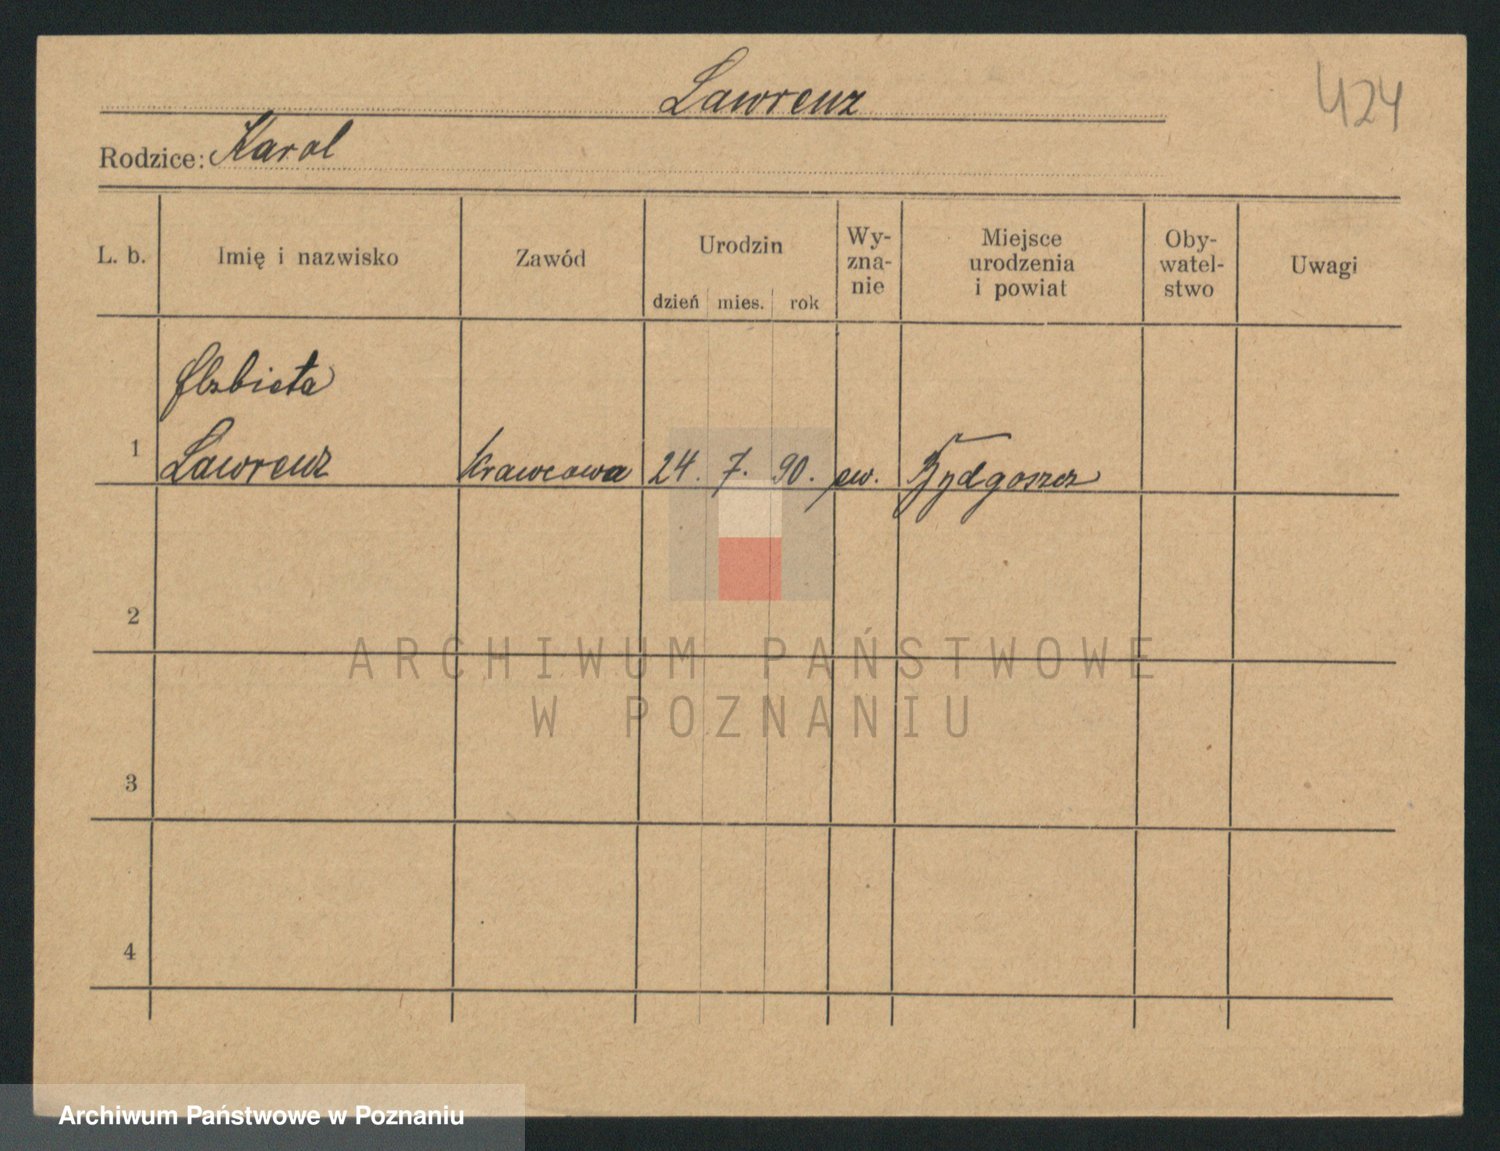 Lawrenz
424
Rodzice: Karol
L. b.
Imię i nazwisko
Zawód
Urodzin
dzień mies. rok
Wy-
zna-
nie
Miejsce
urodzenia
i powiat
Oby-
watel-
stwo
Uwagi
Elzbieta
1 Lawrenz Krawcowa 24. 7. 90. ew. Bydgoszcz
2
ARCHIWUM PAŃSTWOWE
W POZNANIU
3
4
Archiwum Państwowe w Poznaniu